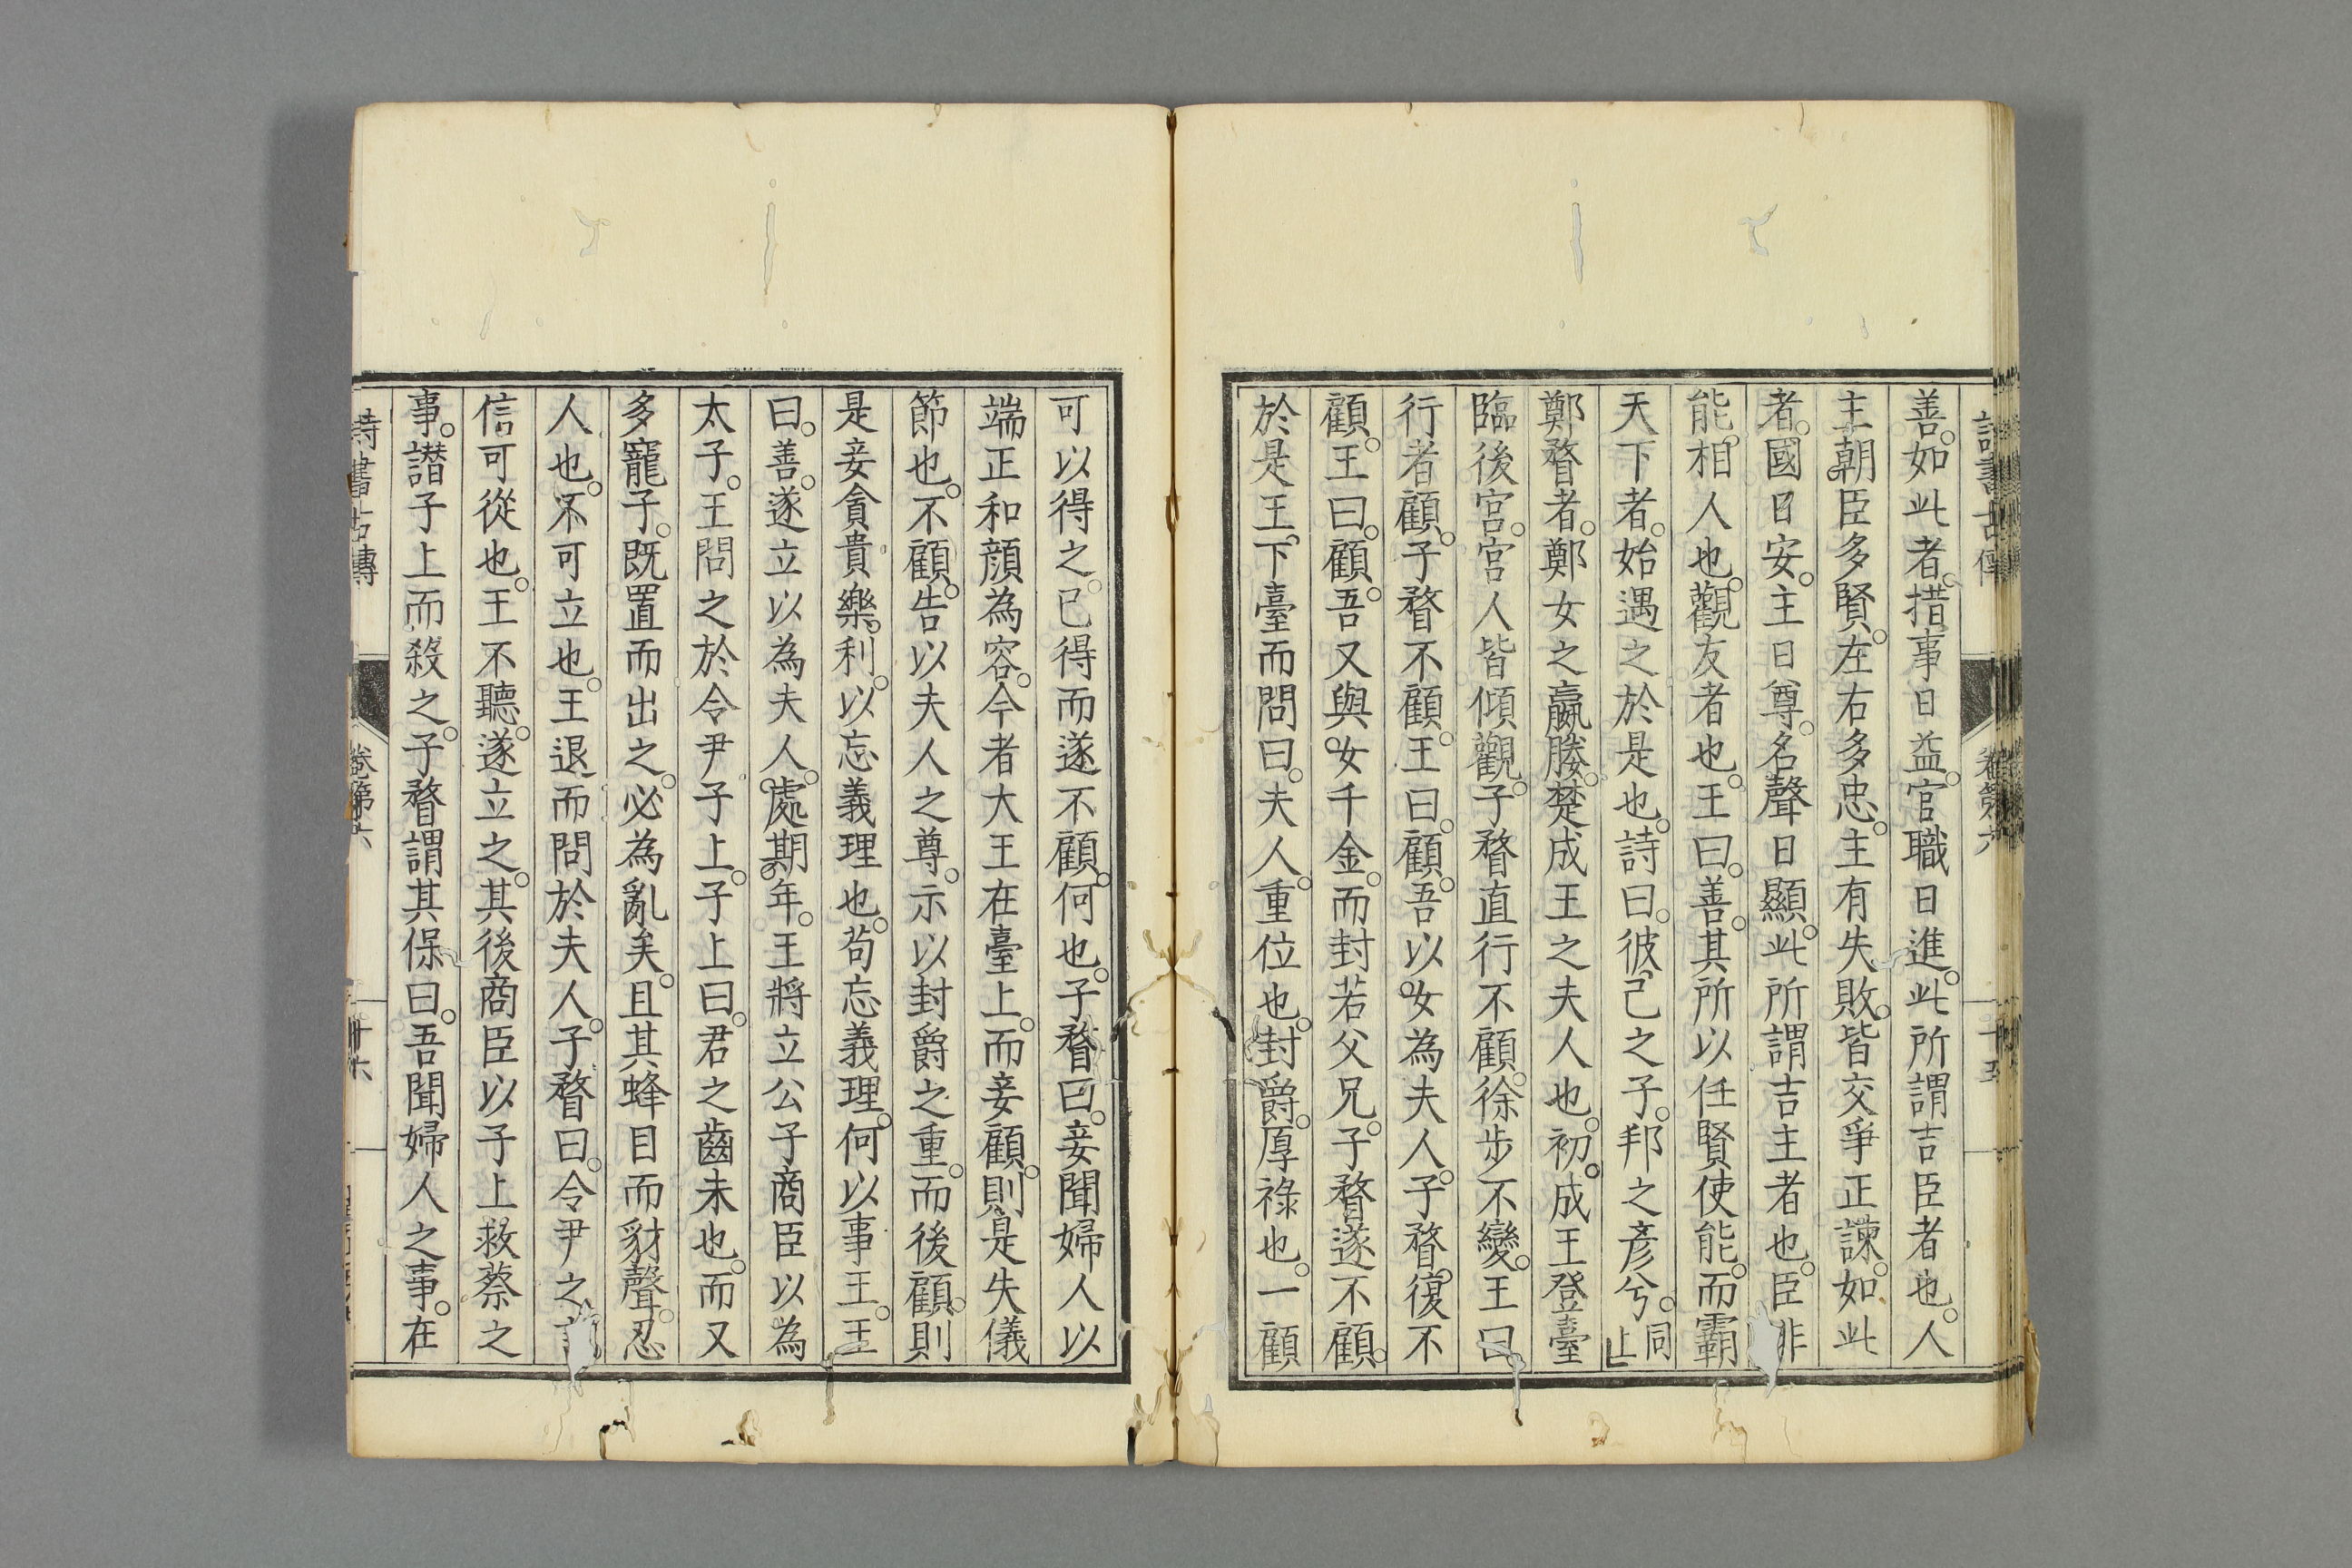 善。如此者。措事日益。官職日進。此所謂吉臣者也。人
主朝臣多賢。左右多忠。主有失敗。皆交爭正諫。如此
者。國日安。主日尊。名聲日顯。此所謂吉主者也。臣非
能相人也。觀友者也。王曰。善。其所以任賢使能。而霸
天下者。始遇之於是也。詩曰。彼己之子。邦之彥兮。同上
鄭瞀者。鄭女之嬴媵。楚成王之夫人也。初。成王登臺
臨後宮。宮人皆傾觀。子瞀直行不顧。徐步不變。王曰
行者顧。子瞀不顧。王曰。顧。吾以女為夫人。子瞀復不
顧。王曰。顧。吾又與女千金。而封若父兄。子瞀遂不顧。
於是王。下臺而問曰。夫人。重位也。封爵。厚祿也。一顧
可以得之。已得而遂不顧。何也。子瞀曰。妾聞婦人以
端正和顏為容。今者大王在臺上。而妾顧。則是失儀
節也。不顧。告以夫人之尊。示以封爵之重。而後顧。則
是妾貪貴樂利。以忘義理也。苟忘義理。何以事王。王
曰。善。遂立以為夫人。處期年。王將立公子商臣以為
太子。王問之於令尹子上。子上曰。君之齒未也。而又
多寵子。既置而出之。必為亂矣。且其蜂目而豺聲。忍
人也。不可立也。王退而問於夫人。子瞀曰。令尹之
信可從也。王不聽。遂立之。其後商臣以子上救蔡之
事。譖子上而殺之。子瞀謂其保曰。吾聞婦人之事。在
詩書古傳
卷第六
十六